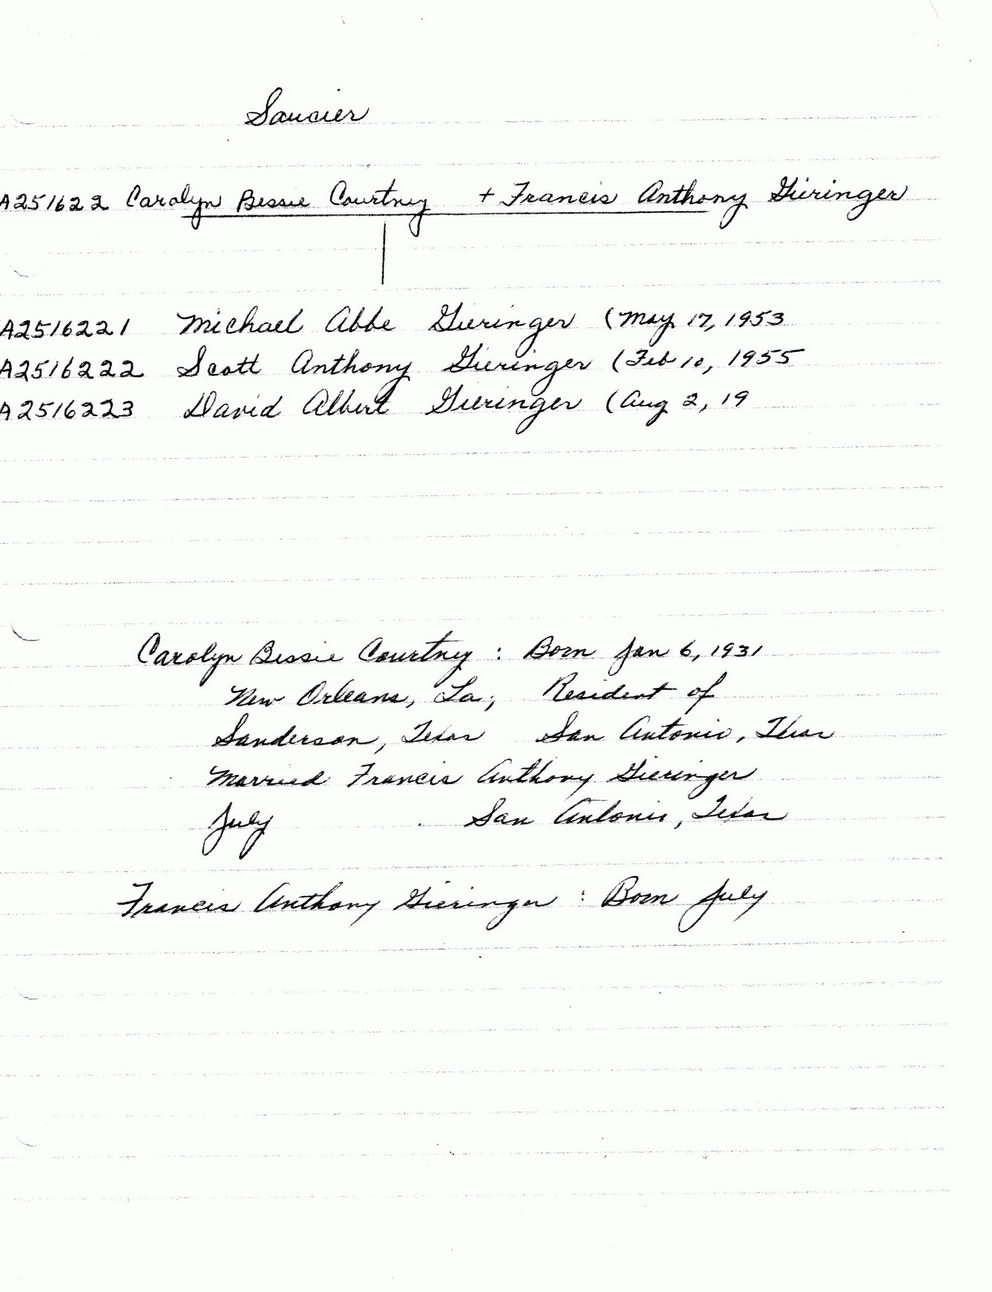 Saucier
A251622 Carolyn Bessie Courtney + Francis Anthony Gieringer
A2516221 Michael Abbe Gieringer (May 17, 1953
A2516222 Scott Anthony Gieringer (Feb 10, 1955
A2516223 David Albert Gieringer (Aug 2, 19
Carolyn Bessie Courtney : Born Jan 6, 1931
New Orleans, La; Resident of
Sanderson, Texas San Antonio, Texas
Married Francis Anthony Gieringer
July San Antonio, Texas
Francis Anthony Gieringer : Born July